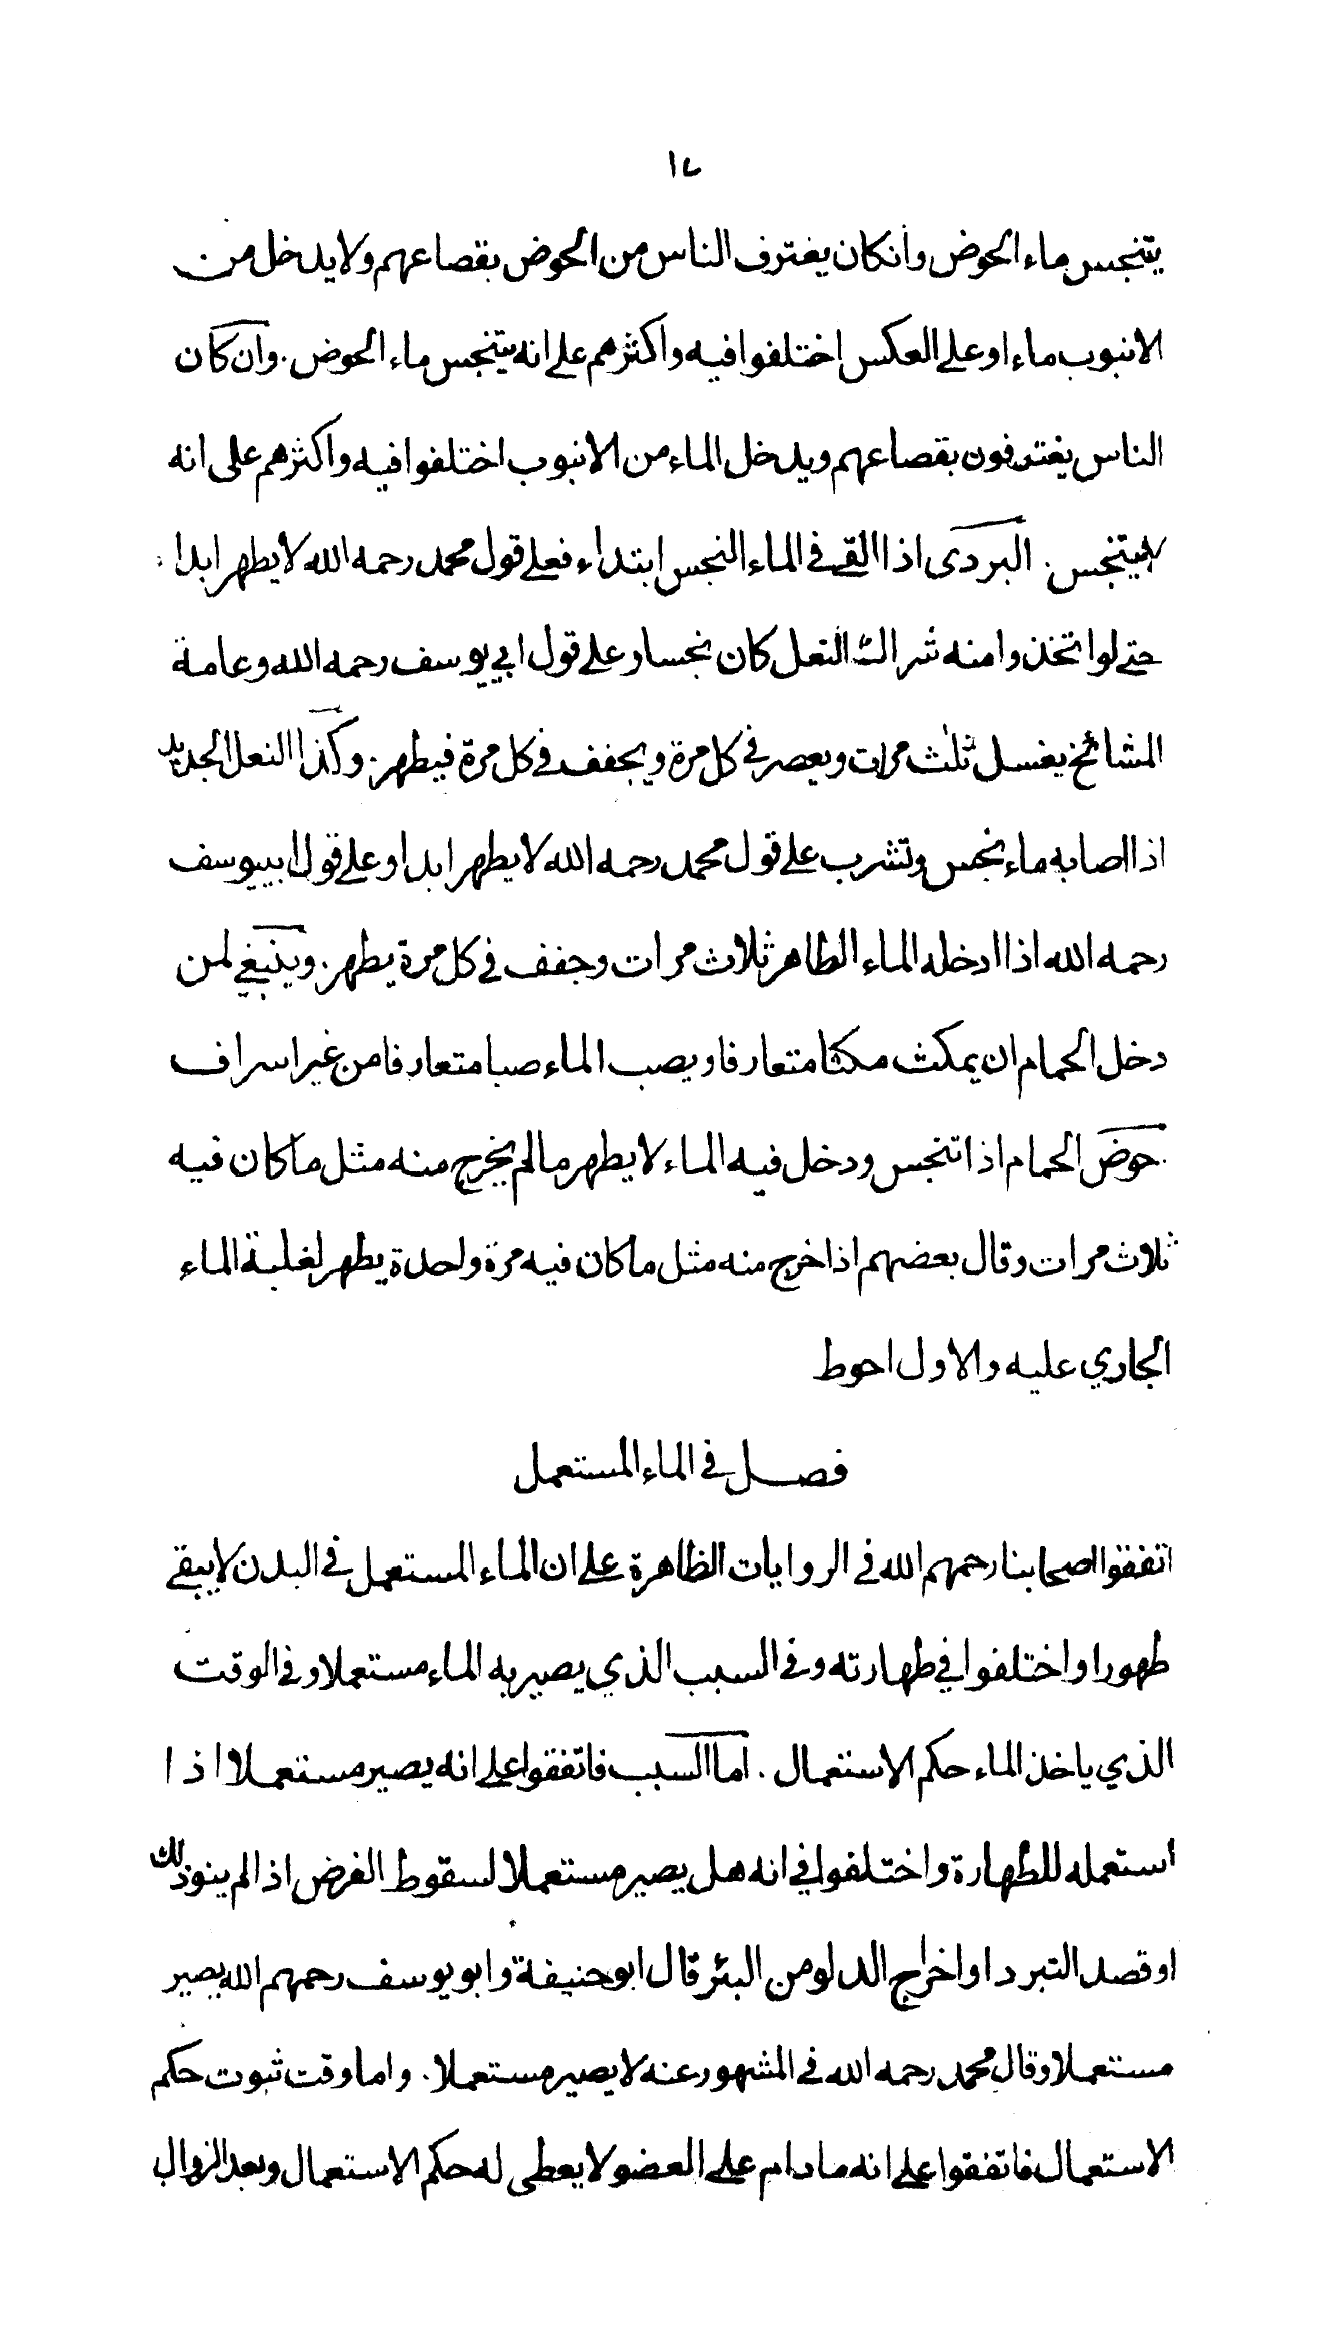 ١٧
يتنجس ماء الحوض وانكان يغترف الناس من الحوض بقصاعهم ولا يدخل من
الانبوب ماء او على العكس اختلفوا فيه واكثرهم على انه يتنجس ماء الحوض . وان كان
الناس يغترفون بقصاعهم ويدخل الماء من الانبوب اختلفوا فيه واكثرهم على انه
لا يتنجس . البردى اذا القى في الماء النجس ابتداء فعلى قول محمد رحمه الله لا يطهر ابدا
حتى لو اتخذوا منه شراك النعل كان نجسا وعلى قول ابي يوسف رحمه الله وعامة
المشائخ يغسل ثلث مرات ويعصر في كل مرة ويجفف في كل مرة فيطهر . وكذا النعل الجديد
اذا اصابه ماء نجس وتشرب على قول محمد رحمه الله لا يطهر ابدا وعلى قول ابييوسف
رحمه الله اذا ادخله الماء الطاهر ثلاث مرات وجفف في كل مرة يطهر . وينبغي لمن
دخل الحمام ان يمكث مكثا متعارفا ويصب الماء صبا متعارفا من غير اسراف
. حوض الحمام اذا تنجس ودخل فيه الماء لا يطهر ما لم يخرج منه مثل ما كان فيه
ثلاث مرات وقال بعضهم اذا خرج منه مثل ما كان فيه مرة واحدة يطهر لغلبة الماء
الجاري عليه والاول احوط
فصل في الماء المستعمل
اتفقوا اصحابنا رحمهم الله في الروايات الظاهرة على ان الماء المستعمل في البدن لا يبقى
طهورا واختلفوا في طهارته وفي السبب الذي يصير به الماء مستعملا وفي الوقت
الذي ياخذ الماء حكم الاستعمال . اما السبب فاتفقوا على انه يصير مستعملا اذا
استعمله للطهارة واختلفوا في انه هل يصير مستعملا لسقوط الفرض اذا لم ينو ذلك
او قصد التبرد او اخراج الدلو من البئر قال ابو حنيفة وابو يوسف رحمهم الله يصير
مستعملا وقال محمد رحمه الله في المشهور عنه لا يصير مستعملا . واما وقت ثبوت حكم
الاستعمال فاتفقوا على انه ما دام على العضو لا يعطى له حكم الاستعمال وبعد الزوال